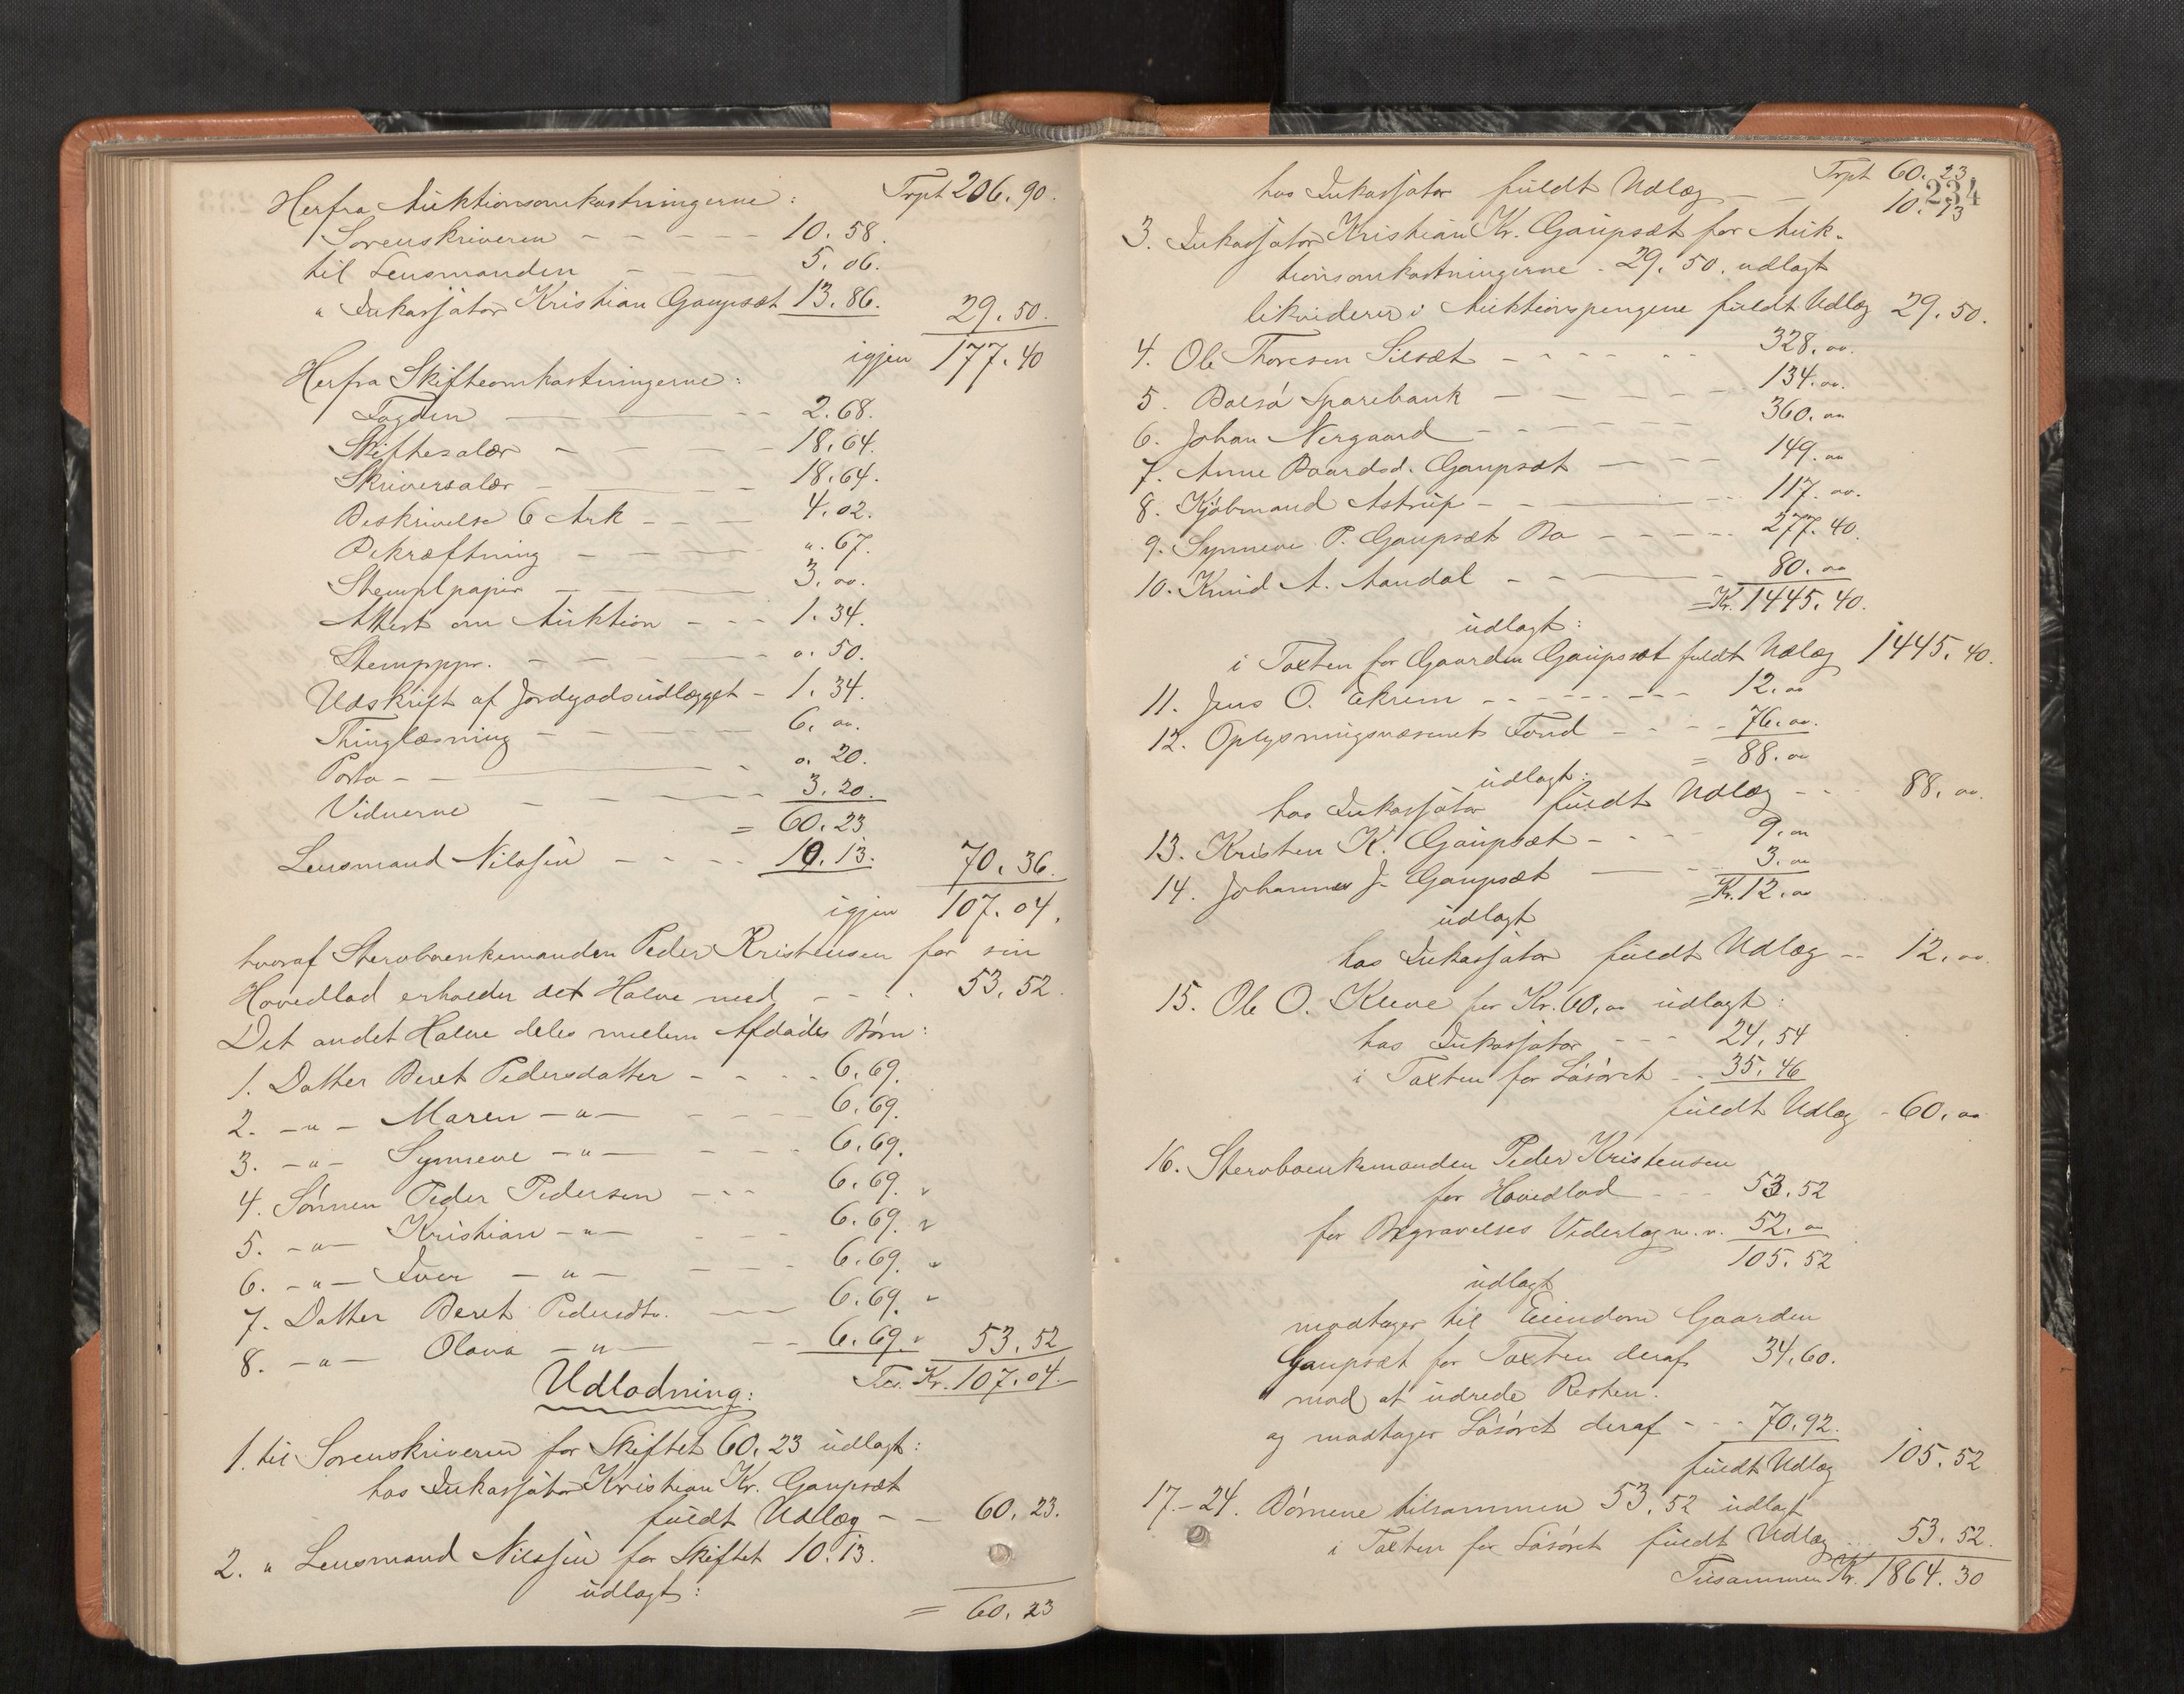 Trpt 206. 90.
Herfra Auktionsomkostningerne:
Sorenskriveren - - - - - 10. 58.
til Lensmanden - - - 5. 06.
" Inkassator Kristian Gaupsæt 13. 86. 29. 50.
igjen 177. 40
Herfra Skifteomkostningerne:
Fogden - - - 2. 68.
Skiftesalær - - - 18. 64.
Skriversalær - - - 18. 64.
Beskrivelse 6 Ark - - - 4. 02.
Bekræftning - - - ". 67.
Stemplpapir - - - 3. oo.
Attest om Auktion - - - 1. 34.
Stempppr. - - - o. 50.
Udskrift af Jordgodsudlægget - 1. 34.
Thinglæsning - - - 6. oo.
Porto - - - o. 20.
Vidnerne - - - 3. 20.
= 60. 23.
Lensmand Nilssen - - - 10. 13. 70. 36.
igjen 107. 04.
hvoraf Stervboenkemanden Peder Kristensen for sin
Hovedlod erholder det Halve med - - - 53. 52.
Det andet Halve deles mellem Afdødes Børn:
1. Datter Beret Pedersdatter - - - 6. 69.
2. - " - Maren - " - - - - 6. 69.
3. - " - Synneve - " - - - - 6. 69.
4. Sønnen Peder Pedersen - - - 6. 69. "
5. - " - Kristian - " - - - - 6. 69. "
6. - " - Iver - " - - - - 6. 69. "
7. Datter Beret Pedersdtr. - - - 6. 69. "
8. - " - Olava - " - - - 6. 69. " 53. 52
Tils. Kr. 107. 04.
Udlodning:
1. til Sorenskriveren for Skiftet 60. 23 udlagt:
hos Inkassator Kristian Kr. Gaupsæt
fuldt Udlæg - - 60. 23.
2. " Lensmand Nilssen for Skiftet 10. 13.
udlagt:
= 60. 23
Trpt 60. 23
234
hos Inkassator fuldt Udlæg - - 10. 13
3. Inkassator Kristian Kr. Gaupsæt for Auk-
tionsomkostningerne - 29. 50. udlagt
likviderer i Auktionspengene fuldt Udlæg 29. 50.
4. Ole Thoresen Silsæt - - - - 328. oo.
5. Bolsø Sparebank - - - - 134. oo.
6. Johan Nergaard - - - - 360. oo
7. Anne Baardsd. Gaupsæt - - - 149. oo
8. Kjøbmand Astrup - - - 117. oo.
9. Synneve P. Gaupsæt Bo - - - - 277. 40.
10. Knud A. Aandal - - - 80. oo
= Kr. 1445. 40.
udlagt:
i Taxten for Gaarden Gaupsæt fuldt Udlæg 1445. 40.
11. Jens O. Ekrem - - - - - 12. oo
12. Oplysningsvæsenets Fond - - - 76. oo.
= 88. oo
udlagt:
hos Inkassator fuldt Udlæg - - 88. oo.
13. Kristen K. Gaupsæt - - - 9. oo
14. Johannes J. Gaupsæt - - - 3. oo
= Kr. 12. oo
udlagt
hos Inkassator fuldt Udlæg - - 12. oo.
15. Ole O. Kleve for Kr. 60. oo udlagt:
hos Inkassator - - - 24. 54
i Taxten for Løsøret - - 35. 46
fuldt Udlæg - 60. oo
16. Stervboenkemanden Peder Kristensen
for Hovedlod - - - 53. 52
for Begravelses Vederlag m. v. 52. oo
105. 52
udlagt
modtager til Eiendom Gaarden
Gaupsæt for Taxten deraf 34. 60.
mod at udrede Resten.
og modtager Løsøret deraf - - - 70. 92.
fuldt Udlæg 105. 52
17.-24. Børnene tilsammen 53. 52 udlagt
i Taxten for Løsøret fuldt Udlæg - - 53. 52.
Tilsammen Kr. 1864. 30